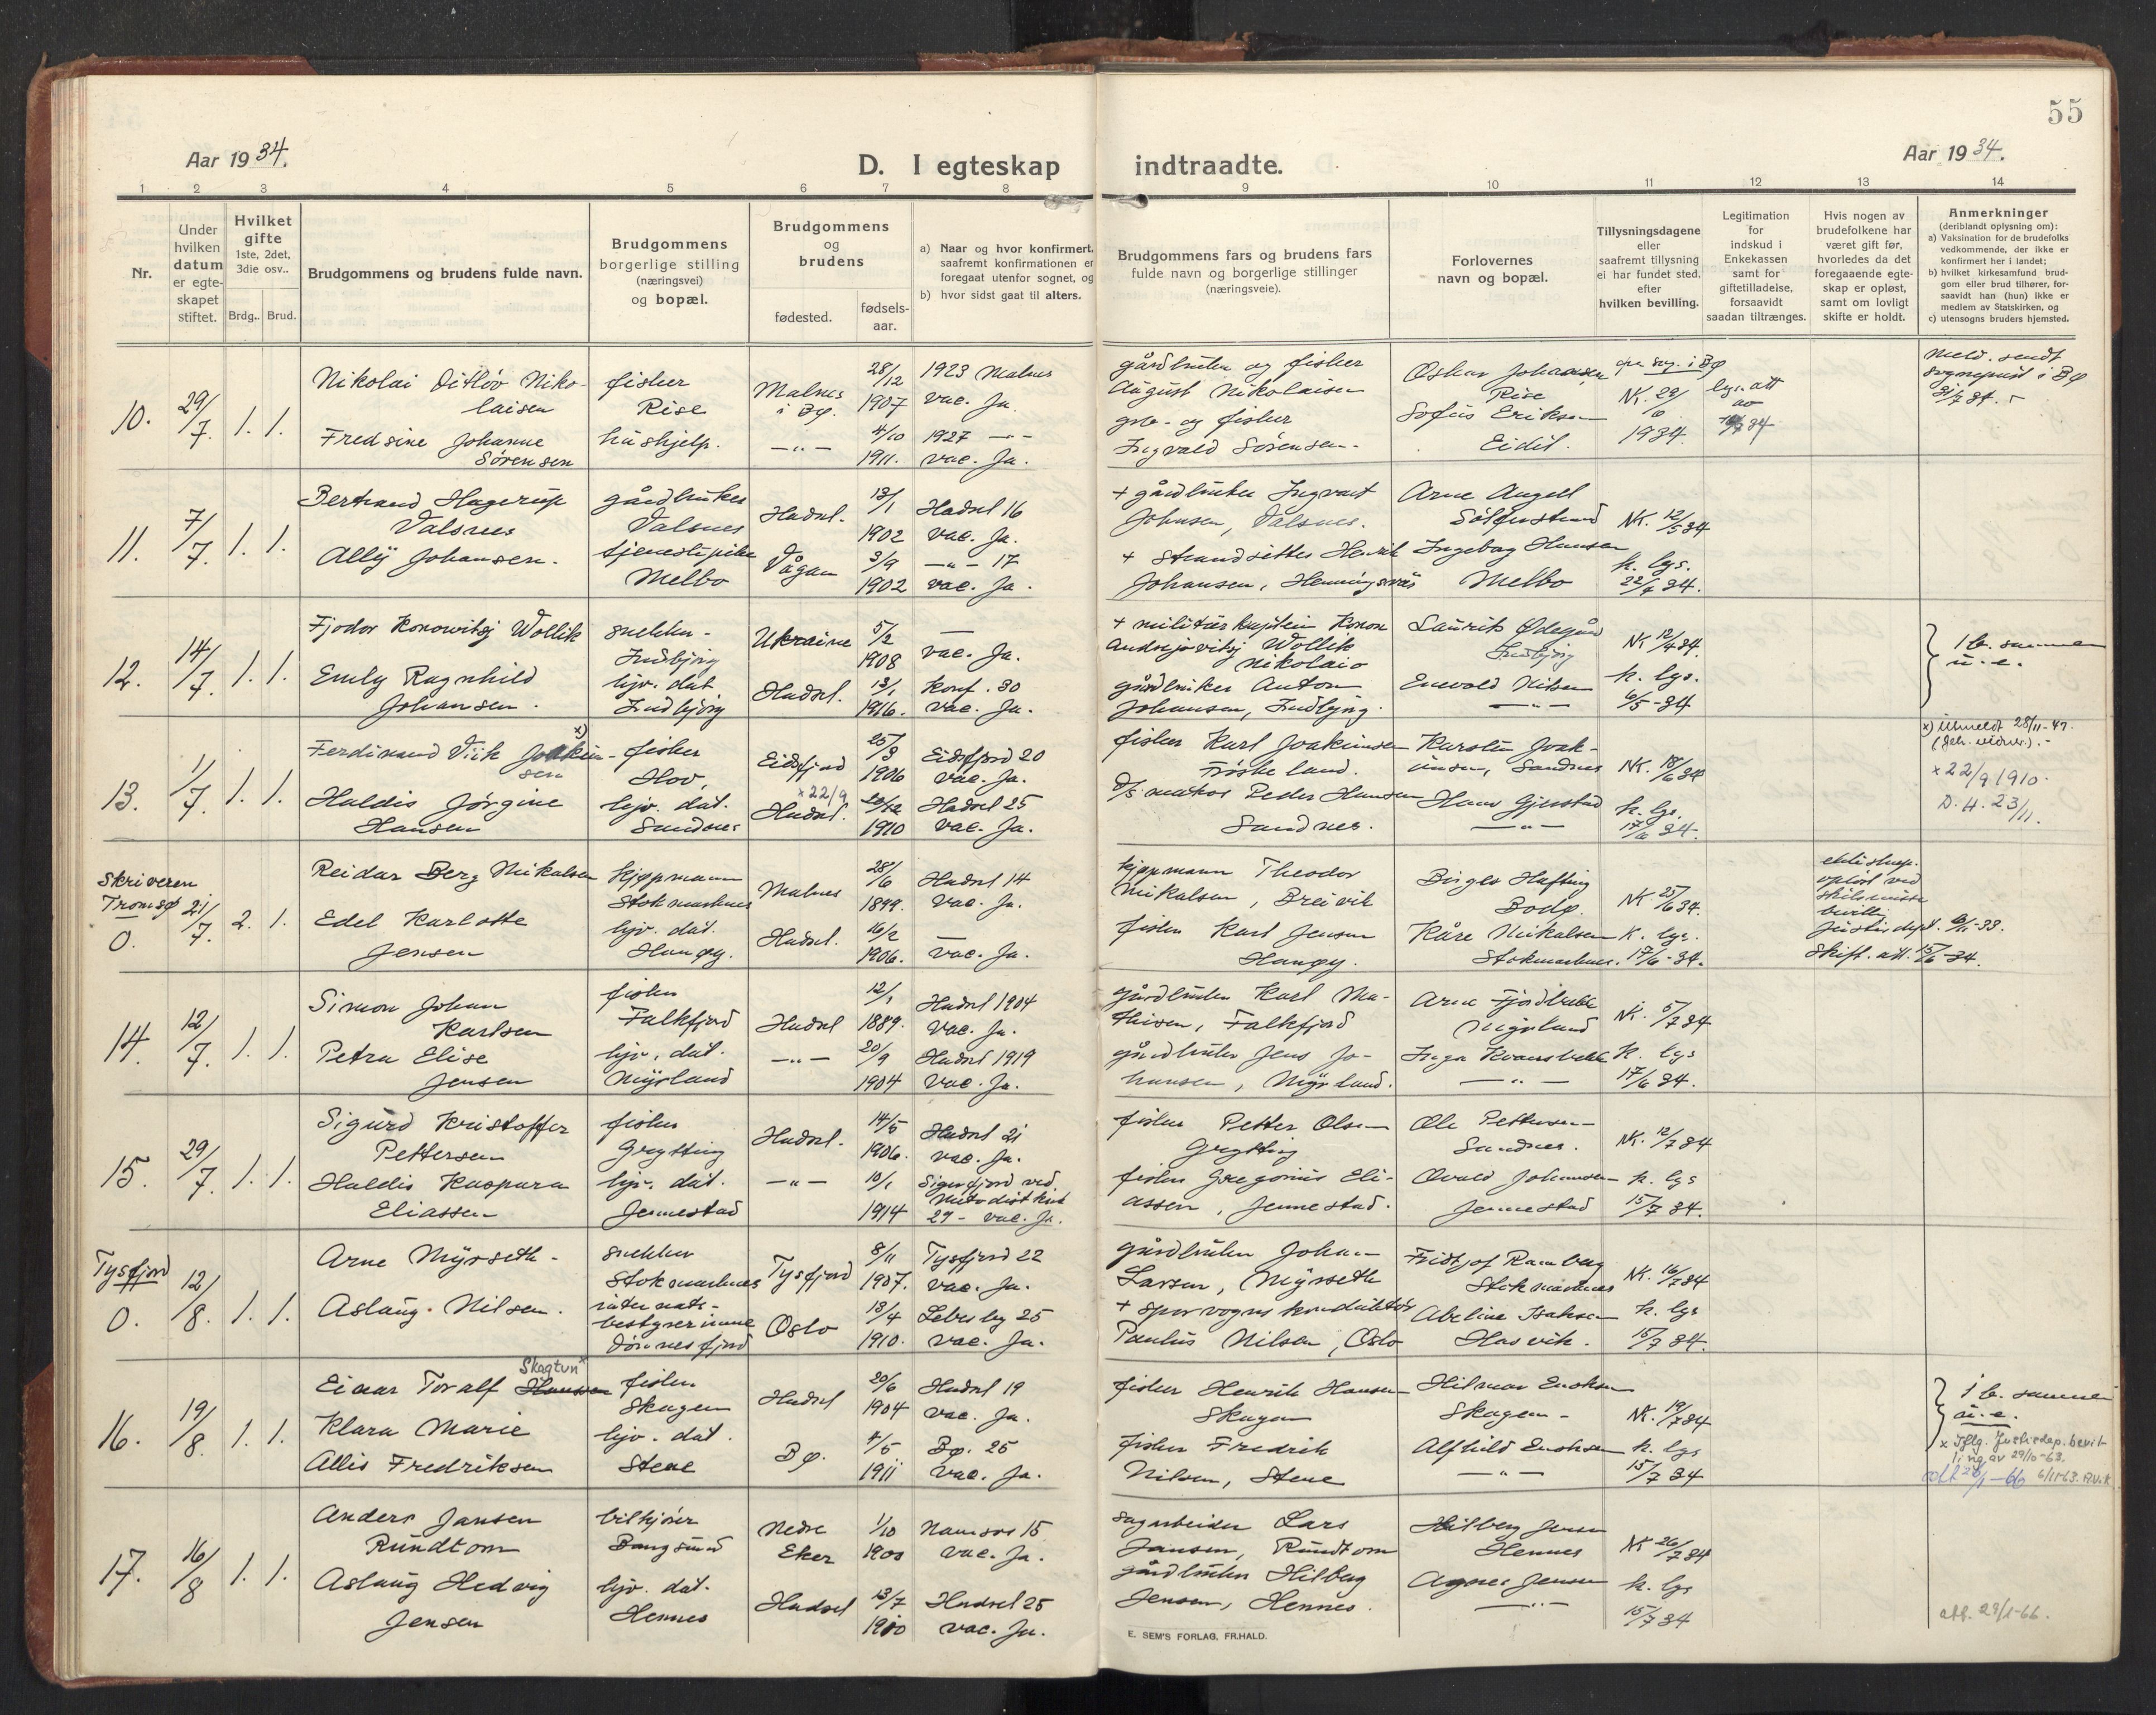 55
Aar 1934.
D. I egteskap indtraadte.
Aar 1934.
1 2 3 4 5 6 7 8 9 10 11 12 13 14
Nr.
Under hvilken datum er egteskapet stiftet.
Hvilket gifte 1ste, 2det, 3die osv..
Brdg.. Brud.
Brudgommens og brudens fulde navn.
Brudgommens borgerlige stilling (næringsvei) og bopæl.
Brudgommens og brudens
fødested.
fødselsaar.
a) Naar og hvor konfirmert, saafremt konfirmationen er foregaat utenfor sognet, og
b) hvor sidst gaat til alters.
Brudgommens fars og brudens fars fulde navn og borgerlige stillinger (næringsveie).
Forlovernes navn og bopæl.
Tillysningsdagene eller saafremt tillysning ei har fundet sted, efter hvilken bevilling.
Legitimation for indskud i Enkekassen samt for giftetilladelse, forsaavidt saadan tiltrænges.
Hvis nogen av brudefolkene har været gift før, hvorledes da det foregaaende egteskap er opløst, samt om lovligt skifte er holdt.
Anmerkninger (deriblandt oplysning om):
a) Vaksination for de brudefolks vedkommende, der ikke er konfirmert her i landet;
b) hvilket kirkesamfund brudgom eller brud tilhører, forsaavidt han (hun) ikke er medlem av Statskirken, og
c) utensogns bruders hjemsted.
10. 29/7. 1. 1.
Nikolai Ditløv Nikolaisen
fisker Rise
Malnes i Bø.
28/12 1907
1923 Malnes vac. Ja.
gårdbruker og fisker August Nikolaisen
Oskar Johansen Rise
Meld. sendt sogneprest i Bø 31/7 34.
Fredsine Johanne Sørensen
hushjelp.
—"—
4/10 1911.
1927 —"— vac. Ja.
gbr.- og fisker Ingvald Sørensen.
Sofus Eriksen Eidet.
NK. 29/6 1934.
11. 7/7. 1. 1.
Bertrand Hagerup Valsnes
gårdbruker Valsnes
Hadsel.
13/1 1902
Hadsel 16 vac. Ja.
+ gårdbruker Ingvart Johnsen, Valsnes.
Arne Angell
NK. 12/5 34
Ally Johansen.
tjenestepike Melbo
Vågan
3/9 1902
—"— 17 vac. Ja.
+ Strandsitter Henrik Johansen, Henningsvær
Ingeborg Hansen Melbo
k. lys. 22/4 34.
12. 14/7. 1. 1.
Fjodor Konowitsj Wollik
snekker - Indbjörg
Ukraine
5/2 1908
— vac. Ja.
+ militärkaptein Konon Andrejovitsj Wollik Nikolaio
Laurits Ødegård Indbjörg
NK 12/4 34.
1 b. sammen u. e.
Emily Ragnhild Johansen.
hjv. dat. Indbjörg
Hadsel.
13/1 1916.
Konf. 30 vac. Ja.
gårdbruker Anton Johansen, Indbjörg.
Enevold Nilsen —"—
k. lys. 6/5 - 34
13. 1/7. 1. 1.
Ferdinand Viik Joakimsen x)
fisker Hov,
Eidsfjord
25/3 1906
Eidsfjord 20 vac. Ja.
fisker Karl Joakimsen Frøskeland.
Karstein Joakimsen, Sandnes
NK. 18/6 34
x) Utmeldt 28/11-47.
Haldis Jørgine Hansen
hjv. dat. Sandnes
x 22/9 Hadsel.
1910
Hadsel 25 vac. Ja.
D/S. matros Peder Hansen Sandnes.
Hans Gjerstad —"—
k. lys. 17/6 34.
x 22/9 1910. D. H. 23/11.
Skriveren Tromsø 0. 21/7. 2. 1.
Reidar Berg Mikalsen
kjøpmann Stokmarknes
Malnes
28/6 1899.
Hadsel 14 vac. Ja.
kjøpmann Theodor Mikalsen, Breivik
Birger Hafting Bodø.
NK 25/6 34.
ekteskap. opløst ved skilsmisse bevilling Justisdept. 9/11-33.
Edel Karlotte Jensen
hjv. dat. Hanøy.
Hadsel.
16/2 1906.
— vac. Ja.
fisker Karl Jensen Hanøy.
Kåre Mikalsen Stokmarknes.
K. lys. 17/6 - 34.
Skift. att. 15/6 - 34.
14. 12/7. 1. 1.
Simon Johan Karlsen
fisker Falkfjord
Hadsel
12/1 1889.
Hadsel 1904 vac. Ja.
gårdbruker Karl Mathisen, Falkfjord
Arne Fjordbakk Myrland
NK. 5/7 34
Petra Elise Jensen
hjv. dat. Myrland
—"—
20/9 1904
Hadsel 1919 vac. Ja.
gårdbruker Jens Johansen, Myrland.
Inga Kvannbakk —"—
K. lys 17/6 34.
15. 29/7. 1. 1.
Sigurd Kristoffer Pettersen
fisker Grytting
Hadsel.
14/5 1906.
Hadsel 21 vac. Ja.
fisker Petter Olsen Grytting
Ole Pettersen Sandnes.
NK. 12/7 34
Haldis Kaspara Eliassen
hjv. dat. Jennestad
—"—
10/1 1914
Sigerfjord ved Metodistkirk 29 - vac. Ja.
fisker Gregorius Eliassen, Jennestad.
Osvald Johansen Jennestad
k. lys 15/7 34.
Tysfjord 0. 12/8. 1. 1.
Arne Myrseth.
snekker Stokmarknes
Tysfjord
8/11 1907.
Tysfjord 22 vac. Ja.
gårdbruker Johan Larsen, Myrseth
Fridtjof Ramberg Stokmarknes
NK. 16/7 34
Aslaug Nilsen.
internatsbestyrerinne
Oslo
13/4 1910.
Lebesby 25 vac. Ja.
+ sporvognskonduktør Paulus Nilsen, Oslo
Abeline Isaksen Hasvik.
k. lys 15/7 34.
16. 19/8. 1. 1.
Einar Toralf Hansen Skogtun x
fisker Skagen
Hadsel
20/6 1904
Hadsel 19 vac. Ja.
fisker Henrik Hansen Skagen
Hilmar Enoksen Skagen -
NK. 19/7 34
1 b. sammen u. e.
Klara Marie Allis Fredriksen
hjv. dat. Stene
Bø.
1911
Bø. 25 vac. Ja.
fisker Fredrik Nilsen, Stene
Alfhild Enoksen —"—
k. lys 15/7 34
x Iflg. Justisdep. bevilling av 29/10-63. 6/11-63.
17. 16/8 1. 1.
Anders Jansen Rundtom
bilkjører Bangsund
Nedre Eker
1/10 1900
Namsos 15 vac. Ja.
sagarbeider Lars Jansen, Rundtom
Hilberg Jensen Hennes
NK 26/7 34
Aslaug Hedvig Jensen
hjv. dat. Hennes
Hadsel
13/7 1910
Hadsel 25 vac. Ja.
gårdbruker Hilberg Jensen, Hennes.
Agnes Jensen —"—
k. lys 15/7 34
att. 29/1-66.
E. SEM'S FORLAG, FR.HALD.